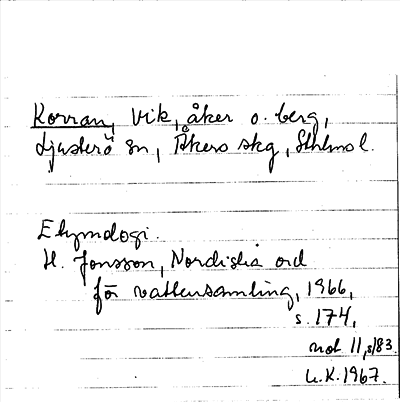 Korran, vik, åker o. berg,
Ljusterö sn, Åkers skg, Sthlms l.
Etymologi.
H. Jonsson, Nordiska ord
för vattensamling, 1966,
s. 174,
not 11, s 183.
L.K. 1967.